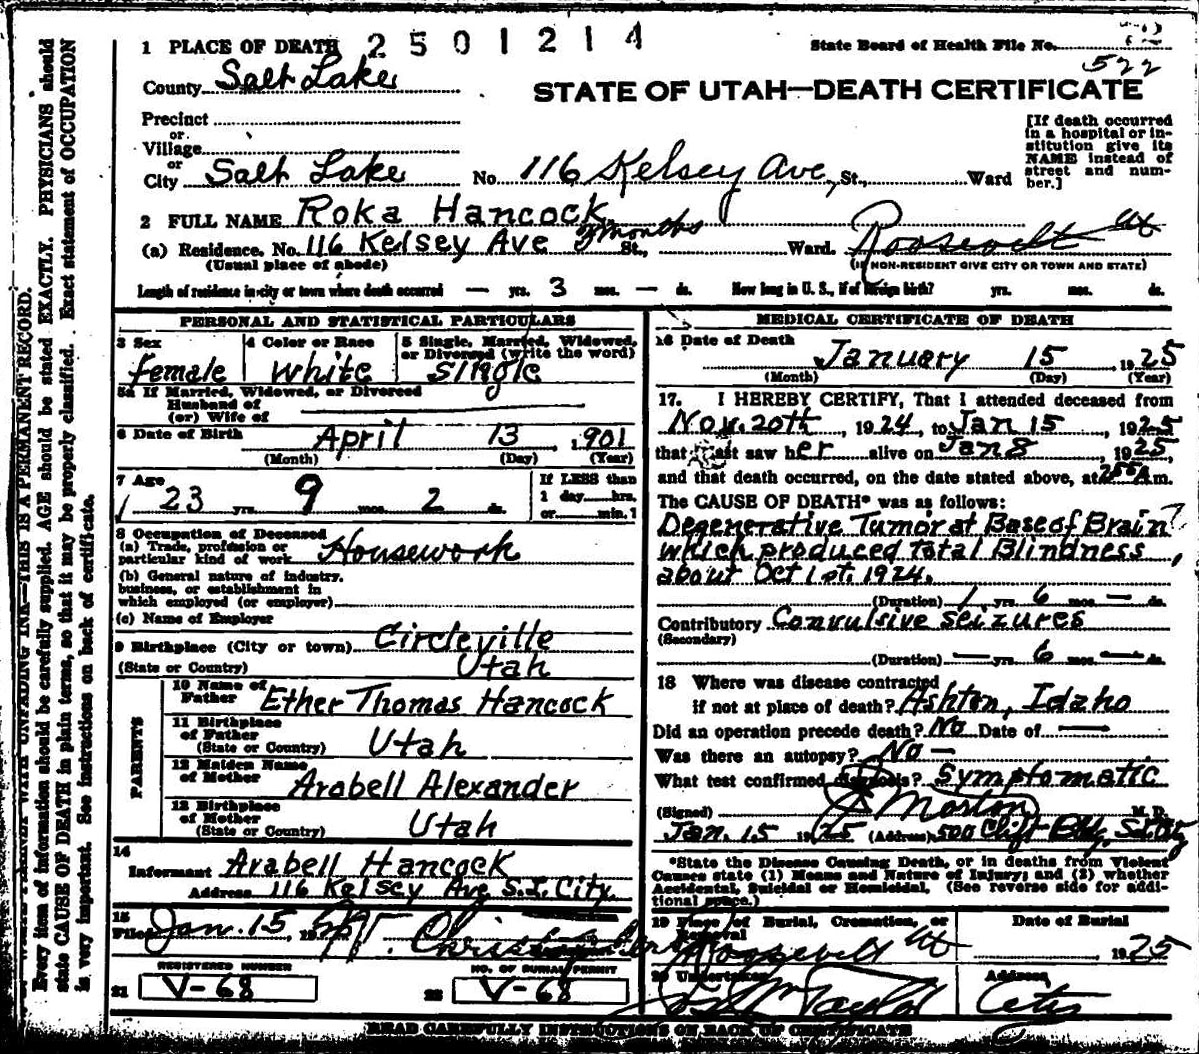 1 PLACE OF DEATH 2501214
State Board of Health File No. 522
County Salt Lake
STATE OF UTAH—DEATH CERTIFICATE
Precinct
or
Village
or
City Salt Lake No 116 Kelsey Ave, St., Ward
[If death occurred in a hospital or institution give its NAME instead of street and number.]
2 FULL NAME Roka Hancock
(a) Residence. No. 116 Kelsey Ave 3 months St., Ward. Roosevelt Ut
(Usual place of abode)
(If NON-RESIDENT GIVE CITY OR TOWN AND STATE)
Length of residence in city or town where death occurred — yrs. 3 mos. — ds. How long in U. S., if of foreign birth? yrs. mos. ds.
PERSONAL AND STATISTICAL PARTICULARS
3 Sex
female
4 Color or Race
White
5 Single, Married, Widowed, or Divorced (write the word)
Single
5a If Married, Widowed, or Divorced
Husband of
(or) Wife of
6 Date of Birth April 13, 1901
(Month) (Day) (Year)
7 Age
23 yrs. 9 mos. 2 ds.
If LESS than
1 day hrs.
or min.?
8 Occupation of Deceased
(a) Trade, profession or
particular kind of work Housework
(b) General nature of industry,
business, or establishment in
which employed (or employer)
(c) Name of Employer
9 Birthplace (City or town) Circleville
(State or Country) Utah
PARENTS
10 Name of
Father Ether Thomas Hancock
11 Birthplace
of Father
(State or Country) Utah
12 Maiden Name
of Mother Arabell Alexander
13 Birthplace
of Mother
(State or Country) Utah
14
Informant Arabell Hancock
Address 116 Kelsey Ave S.L. City.
15
Filed Jan. 15, 1925
REGISTERED NUMBER
21 V-68
NO. OF BURIAL PERMIT
22 V-68
MEDICAL CERTIFICATE OF DEATH
16 Date of Death
January 15 1925
(Month) (Day) (Year)
17. I HEREBY CERTIFY, That I attended deceased from
Nov. 20th, 1924, to Jan 15, 1925
that I last saw her alive on Jan 8, 1925,
and that death occurred, on the date stated above, at 2 55 A.m.
The CAUSE OF DEATH* was as follows:
Degenerative Tumor at Base of Brain?
which produced Total Blindness,
about Oct 1st. 1924.
(Duration) 1 yrs 6 mos — ds.
Contributory Convulsive seizures
(Secondary)
(Duration) — yrs 6 mos — ds.
18 Where was disease contracted
if not at place of death? Ashton, Idaho
Did an operation precede death? No Date of —
Was there an autopsy? No —
What test confirmed diagnosis? Symptomatic
(Signed) Morton M. D.
Jan. 15 1925 (Address) 500 Clift Bldg. S.L. City
*State the Disease Causing Death, or in deaths from Violent Causes state (1) Means and Nature of Injury; and (2) whether Accidental, Suicidal or Homicidal. (See reverse side for additional space.)
19 Place of Burial, Cremation, or Removal
Roosevelt Ut
Date of Burial
1925
20 Undertaker
Address
City
READ CAREFULLY INSTRUCTIONS ON BACK OF CERTIFICATE
THIS IS A PERMANENT RECORD.
Every item of information should be carefully supplied. AGE should be stated EXACTLY. PHYSICIANS should
state CAUSE OF DEATH in plain terms, so that it may be properly classified. Exact statement of OCCUPATION
is very important. See instructions on back of certificate.